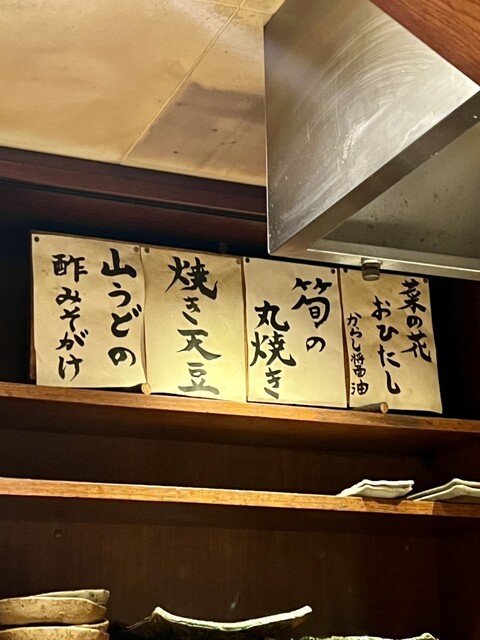 菜の花
おひたし
からし醤油
筍の
丸焼き
焼き天豆
山うどの
酢みそがけ